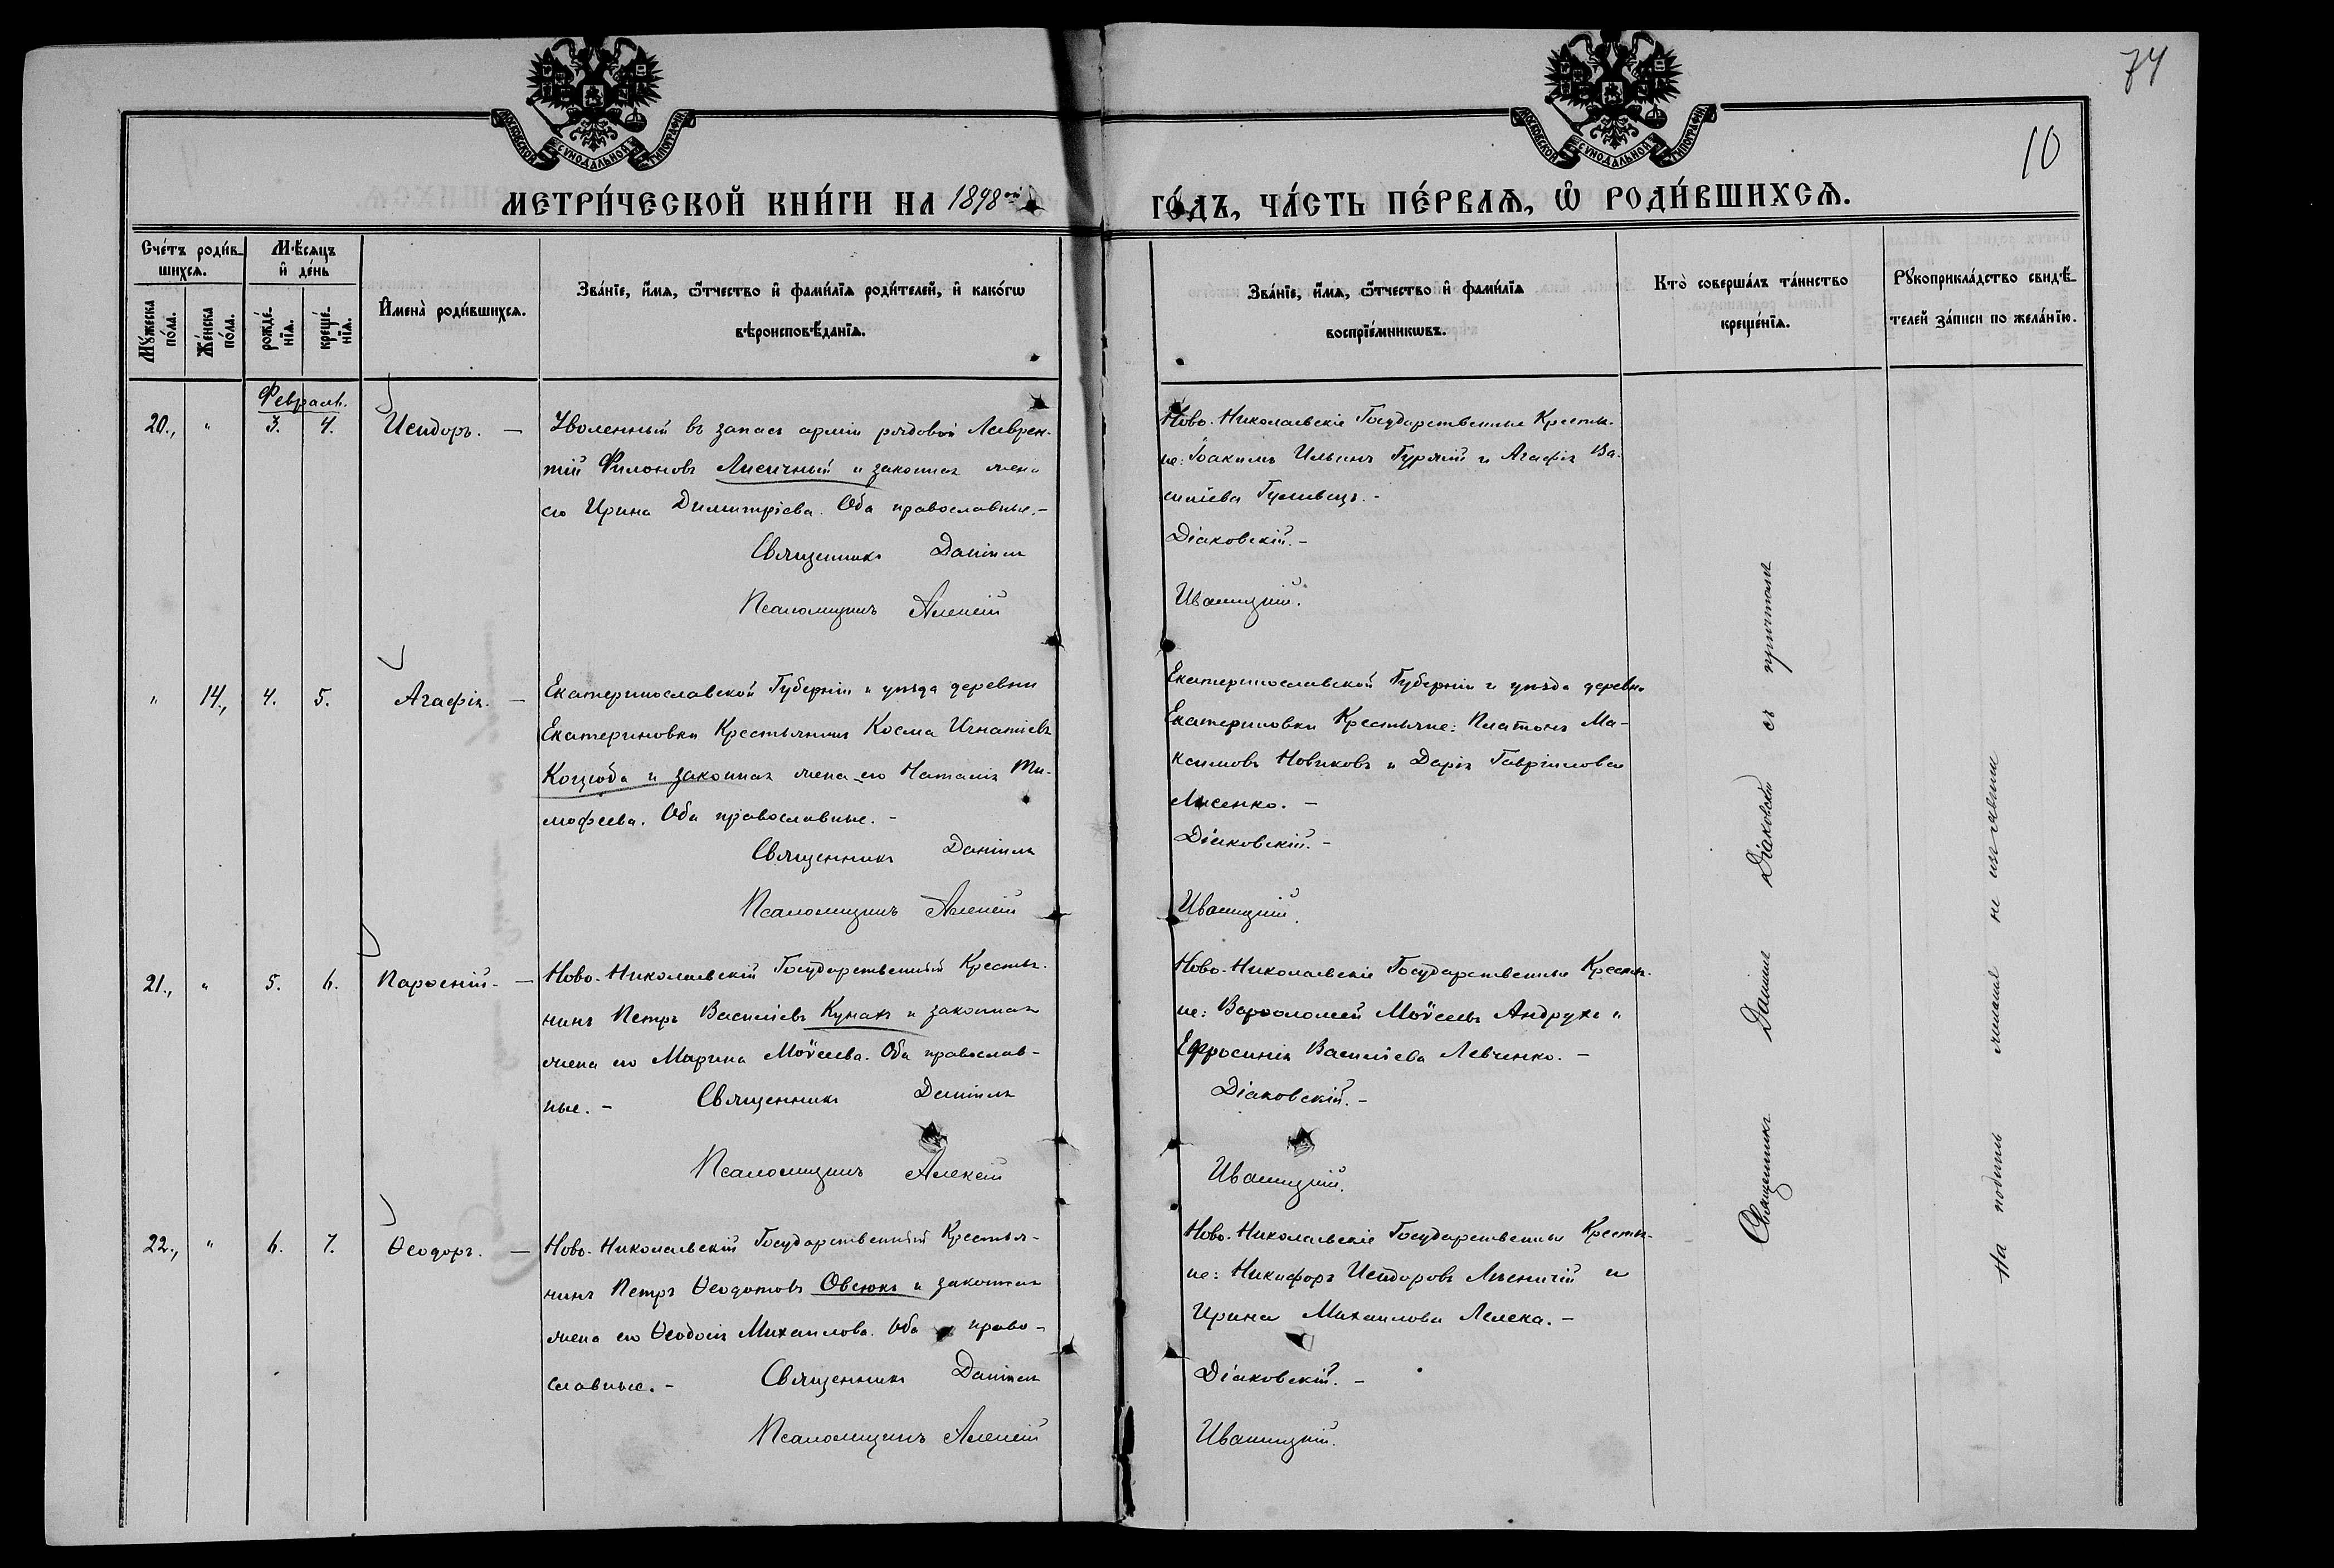 74
10
МОСКОВСКОЙ СУНОДАЛЬНОЙ ТИПОГРАФІИ
МОСКОВСКОЙ СУНОДАЛЬНОЙ ТИПОГРАФІИ
МЕТРИ́ЧЕСКОЙ КНИ́ГИ НА 1898 ой
ГО́ДЪ, ЧА́СТЬ ПЕ́РВАѦ, Ѡ҆ РОДИ́ВШИХСѦ.
Сче́тъ роди́в-
шихсѧ.
Мꙋ́жеска по́ла.
Же́нска по́ла.
Мѣ́сѧцъ
и҆ де́нь
рожде́-
нїѧ.
креще́-
нїѧ.
И҆мена̀ роди́вшихсѧ.
Зва́нїе, и҆́мѧ, ѻ҆́тчество и҆ фами́лїѧ роди́телей, и҆ како́гѡ
вѣроисповѣ́данїѧ.
Зва́нїе, и҆́мѧ, ѻ҆́тчество и҆ фами́лїѧ
воспрїе́мникѡвъ.
Кто̀ соверша́лъ та́инство
креще́нїѧ.
Рꙋкоприкла́дство свидѣ́-
телей за́писи по жела́нїю.
Февраль.
20., " 3. 4. Исидоръ. —
Уволенный въ запасъ арміи рядовой Лаврен-
тій Филоновъ Лисичный и законная жена
его Ирина Димитріева. Оба православные. -
Священникъ Даніилъ
Псаломщикъ Алексій
Ново-Николаевскіе Государственные Крестья-
не: Іоакимъ Ильинъ Гуржій и Агафія Ва-
силіева
Діаковскій. -
Иваницкій.
" 14., 4. 5. Агафія. —
Екатеринославской Губерніи и уѣзда деревни
Екатериновки Крестьянинъ Косма Игнатіевъ
Коцюба и законная жена его Наталія Ти-
мофеева. Оба православные. -
Священникъ Даніилъ
Псаломщикъ Алексій
Екатеринославской Губерніи и уѣзда деревни
Екатериновки Крестьяне: Платонъ Ма-
ксимовъ Новиковъ и Дарія Гавріилова
Лисенко. -
Діаковскій. -
Иваницкій.
21., " 5. 6. Парѳеній. —
Ново-Николаевскій Государственный Крестья-
нинъ Петръ Василіевъ Кунахъ и законная
жена его Марина Моѵсеева. Оба православ-
ные. - Священникъ Даніилъ
Псаломщикъ Алексій
Ново-Николаевскіе Государственные Крестья-
не: Варѳоломей Моѵсеевъ Андруха и
Ефросинія Василіева Левченко. -
Діаковскій. -
Иваницкій.
22., " 6. 7. Ѳеодоръ. —
Ново-Николаевскій Государственный Крестья-
нинъ Петръ Ѳеодотовъ Овсюкъ и законная
жена его Ѳеодосія Михаилова. Оба право-
славные. - Священникъ Даніилъ
Псаломщикъ Алексій
Ново-Николаевскіе Государственные Крестья-
не: Никифоръ Исидоровъ и
Ирина Михаилова Лелека. -
Діаковскій. -
Иваницкій.
Священникъ Даніилъ Діаковскій съ причтомъ
На подпись желанія не изъявили